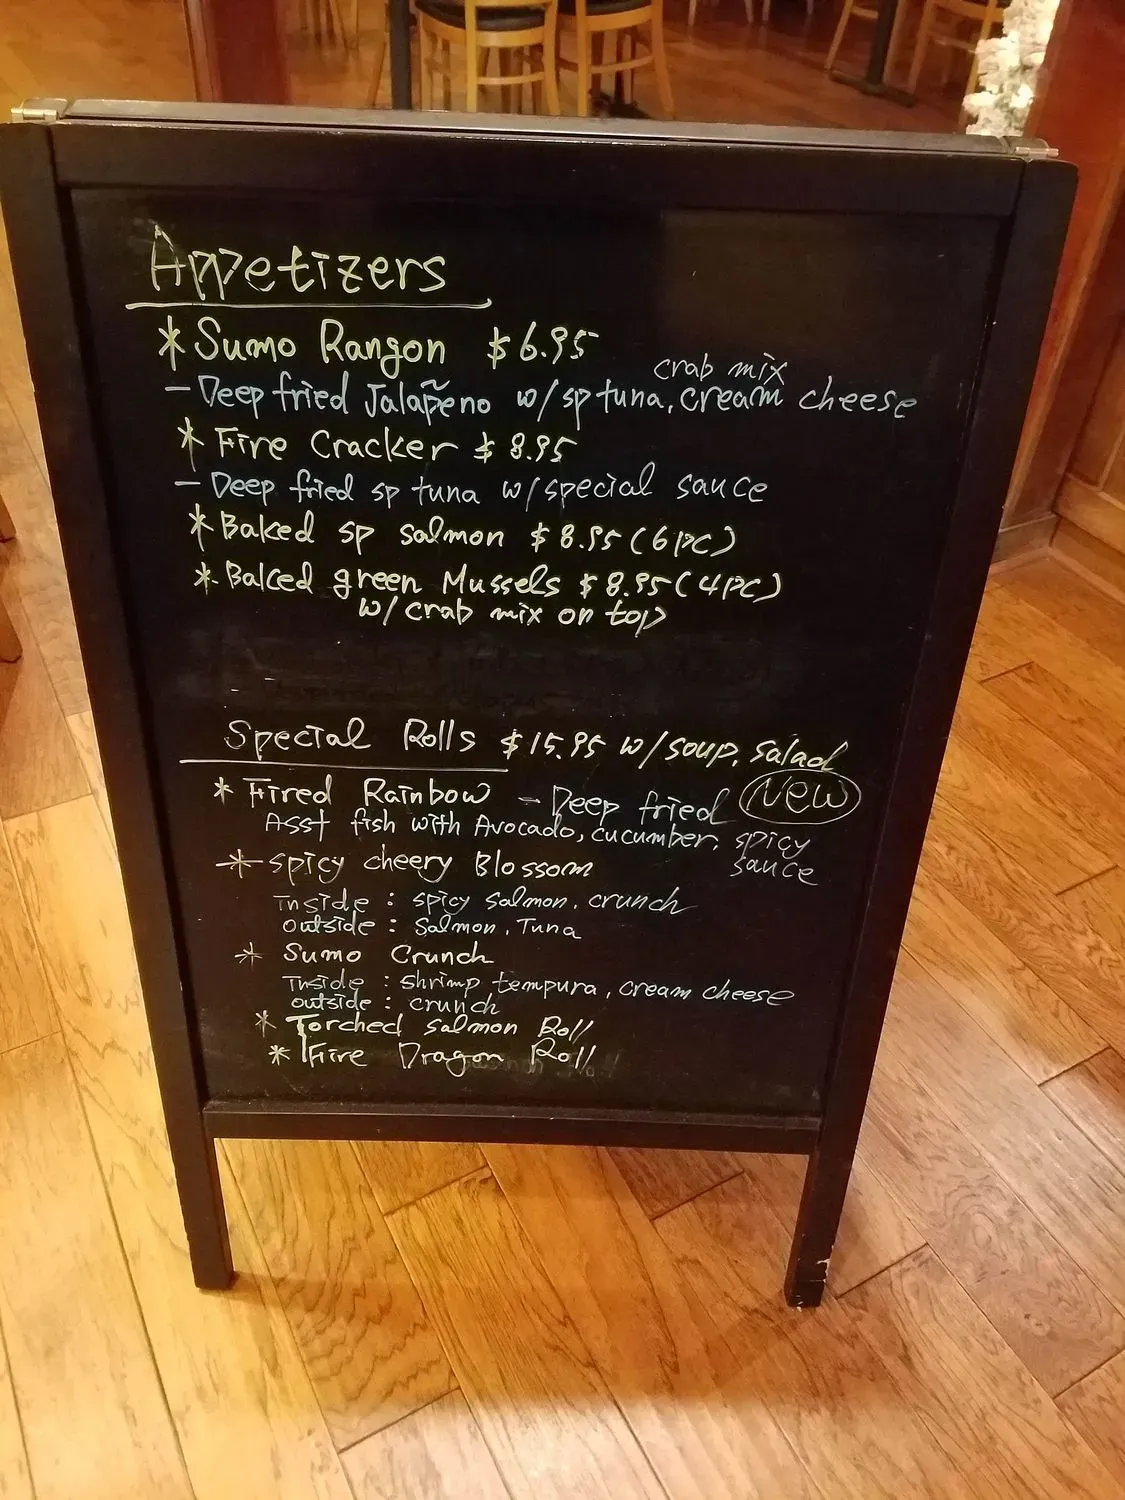 Appetizers
* Sumo Rangon $6.95
crab mix
- Deep fried Jalapeño w/ sp tuna, cream cheese
* Fire Cracker $8.95
- Deep fried sp tuna w/ special sauce
* Baked sp salmon $8.95 (6pc)
* Baked green Mussels $8.95 (4pc)
w/ crab mix on top
Special Rolls $15.95 w/ soup, salad
* Fired Rainbow - Deep fried NEW
Asst fish with Avocado, cucumber, spicy
sauce
* spicy cheery Blossom
inside : spicy salmon, crunch
outside : Salmon, Tuna
* Sumo Crunch
inside : shrimp tempura, cream cheese
outside : crunch
* Torched salmon Roll
* Fire Dragon Roll